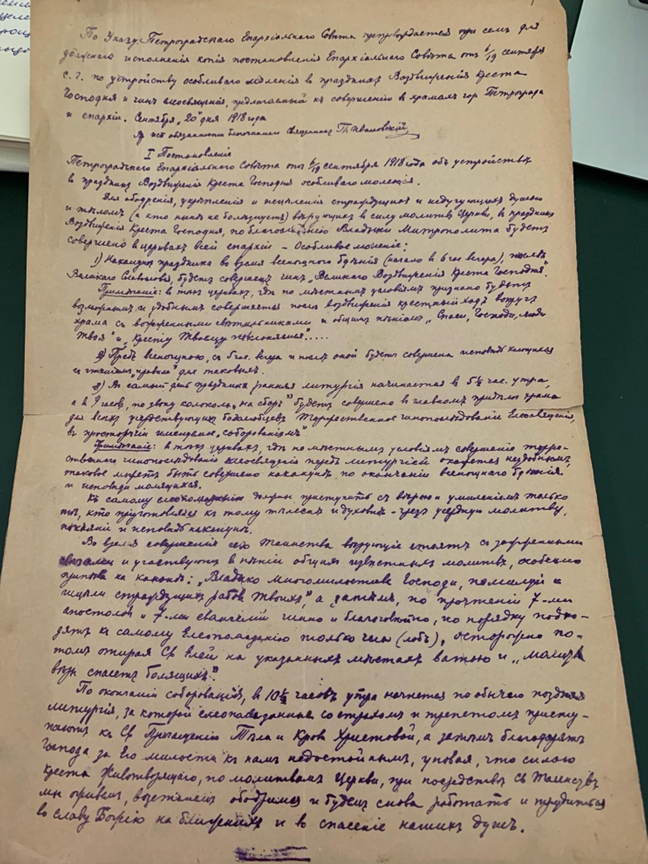 По Указу Петроградскаго Епархіальнаго Совѣта препровождается при семъ для
должнаго исполненія копія постановленія Епархіальнаго Совѣта отъ 6/19 сентября
с. г. по устройству особливаго моленія въ праздникъ Воздвиженія Креста
Господня и чинъ елеосвященія, предлагаемый къ совершенію въ храмахъ гор. Петрограда
и епархіи. Сентября „20" дня 1918 года
обязанности Благочиннаго Священникъ
I Постановленіе
Петроградскаго Епархіальнаго Совѣта отъ 6/19 сентября 1918 года объ устройствѣ
въ праздникъ Воздвиженія Креста Господня особливаго моленія.
Для ободренія, укрѣпленія и исцѣленія страждущихъ и недугующихъ душою
и тѣломъ (а кто нынѣ не болящъ) вѣрующихъ въ силу молитвъ Церкви, въ праздникъ
Воздвиженія Креста Господня, по благословенію Владыки Митрополита будетъ
совершено въ церквахъ всей епархіи – особливое моленіе:
1) Наканунѣ праздника во время всенощнаго бдѣнія (начало въ 6 час. вечера), послѣ
Великаго Славословія, будетъ совершенъ чинъ „Великаго Воздвиженія Креста Господня".
Примѣчаніе: въ тѣхъ церквахъ, гдѣ по мѣстнымъ условіямъ признано будетъ
возможнымъ и удобнымъ совершается послѣ воздвиженія крестный ходъ вокругъ
храма съ возженными свѣтильниками и общимъ пѣніемъ „Спаси, Господи, люди
Твоя" и „Кресту Твоему поклоняемся".....
2) Предъ всенощною, съ 5 час. вечера и послѣ оной будетъ совершена исповѣдь
для таковыхъ.
3) Въ самый день праздника ранняя литургія начинается въ 5½ час. утра,
а въ 9 часовъ, по звону колокола „на сборъ" будетъ совершено въ главномъ придѣлѣ храма
для всѣхъ усердствующихъ богомольцевъ Торжественное чинопослѣдованіе Елеосвященія,
въ просторѣчіи именуемое „соборованіемъ".
Примѣчаніе: въ тѣхъ церквахъ, гдѣ по мѣстнымъ условіямъ совершеніе торже-
ственнаго чинопослѣдованія елеосвященія передъ литургіей окажется неудобнымъ,
таковое можетъ быть совершено наканунѣ, по окончаніи всенощнаго бдѣнія
и исповѣди молящихся.
Къ самому елеопомазанію должны приступать съ вѣрою и умиленіемъ только
тѣ, кто приготовлялся къ тому тѣлесно и духовно – чрезъ усердную молитву,
покаяніе и исповѣдь наканунѣ.
Во время совершенія сего Таинства вѣрующіе стоятъ съ зажженными
свѣчами и участвуютъ въ пѣніи общихъ извѣстныхъ молитвъ, особенно
припѣва на канонѣ: „Владыко Многомилостиве Господи, помилуй и
исцѣли страждущихъ рабовъ Твоихъ", а затѣмъ, по прочтеніи 7-ми
апостоловъ и 7-ми евангелій чинно и благоговѣйно, по порядку подхо-
дятъ къ самому елеопомазанію только чела (лобъ), осторожно по-
томъ отирая Св. елей на указанныхъ мѣстахъ ватою и „молитва
вѣры спасетъ болящихъ".
По окончаніи соборованія, въ 10½ часовъ утра начнется по обычаю поздняя
литургія, за которой елеопомазанные со страхомъ и трепетомъ присту-
паютъ къ Св. Причащенію Тѣла и Крови Христовой, а затѣмъ благодарятъ
Господа за Его милость къ намъ недостойнымъ, уповая, что силою
Креста Животворящаго, по молитвамъ Церкви, при посредствѣ Св. Таинствъ
мы оживемъ, возстанемъ ободримся и будемъ снова работать и трудиться
во славу Божію на ближнихъ и въ спасеніе нашихъ душъ.